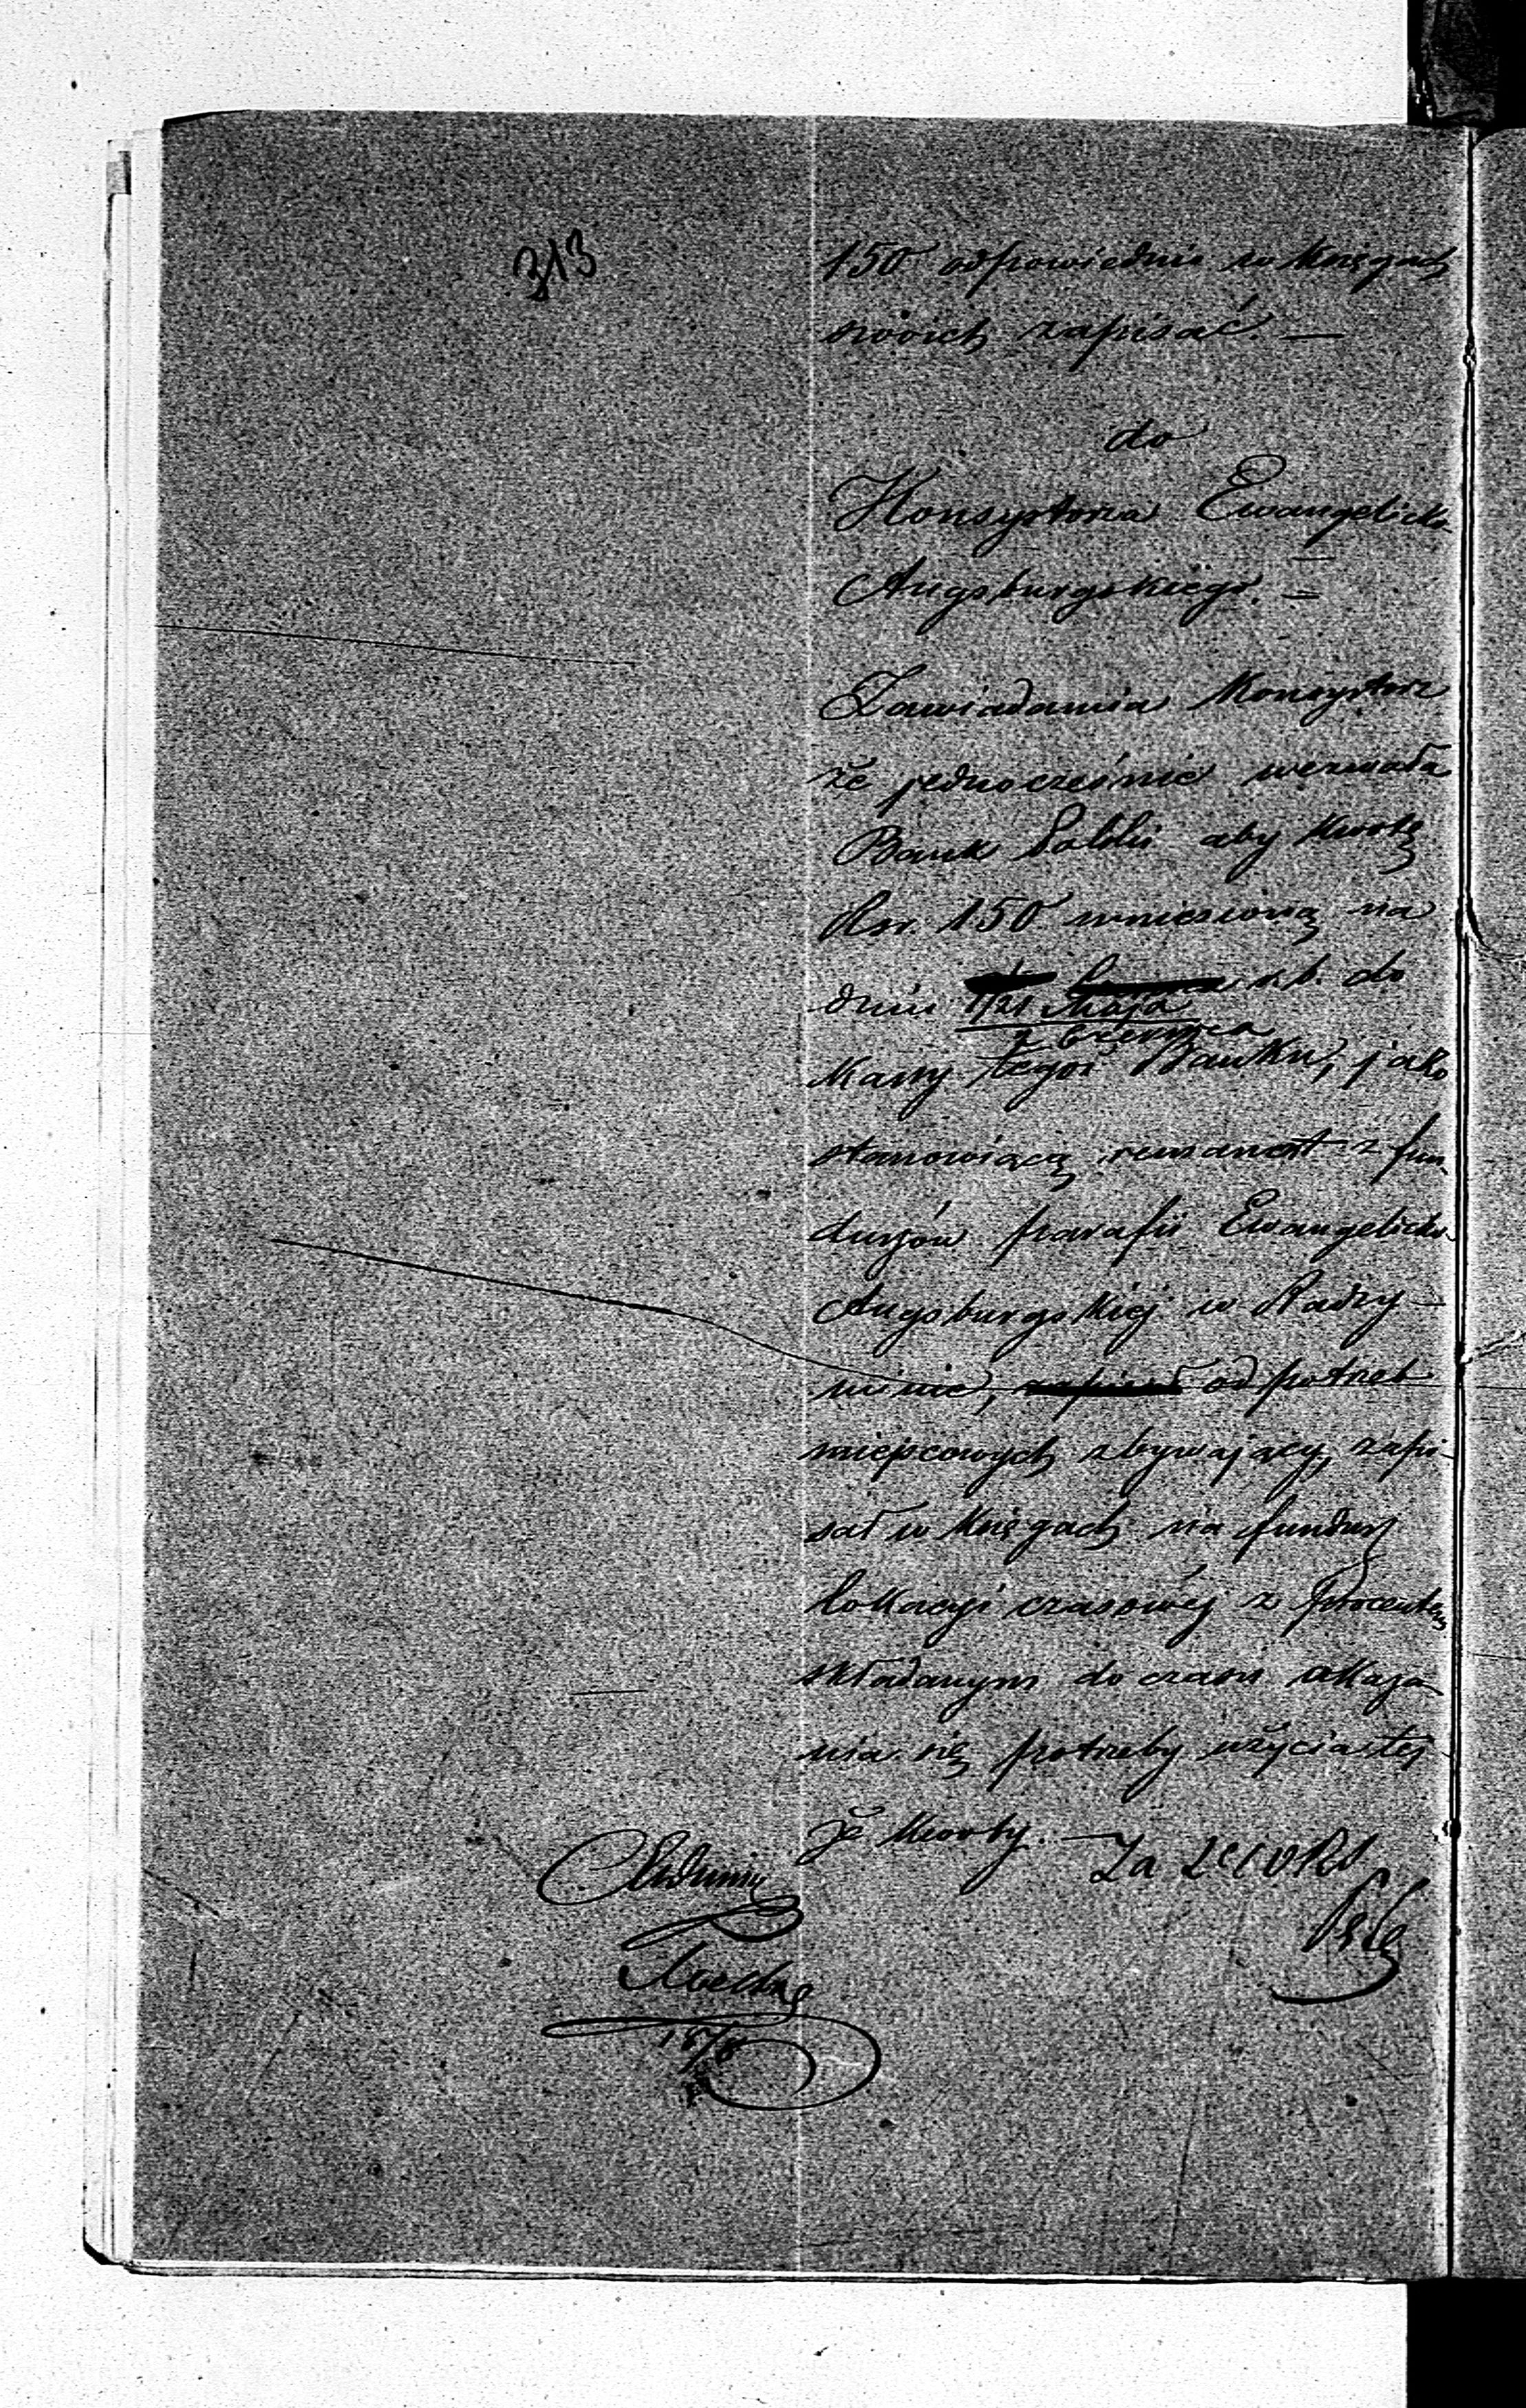 313
150 odpowiednio w Księgach
swoich zapisać. —
do
Konsystorza Ewangelicko
Augsburgskiego. —
Zawiadamia Konsystorz
że jednocześnie wezwała
Bank Polski aby kwotę
Rsr. 150 wniesioną na
dniu 21 Maja r. b. do
2 Czerwca
Kassy tegoż Banku, jako
stanowiącą remanent z fun
duszów parafii Ewangelicko
Augsburgskiej w Radzy-
minie, zapisał od potrzeb
miejscowych zbywający, zapi-
sał w Księgach na fundusz
lokacyi czasowéj z procentem
składanym do czasu okaza-
nia się potrzeby użycia tej
że kwoty. — Za